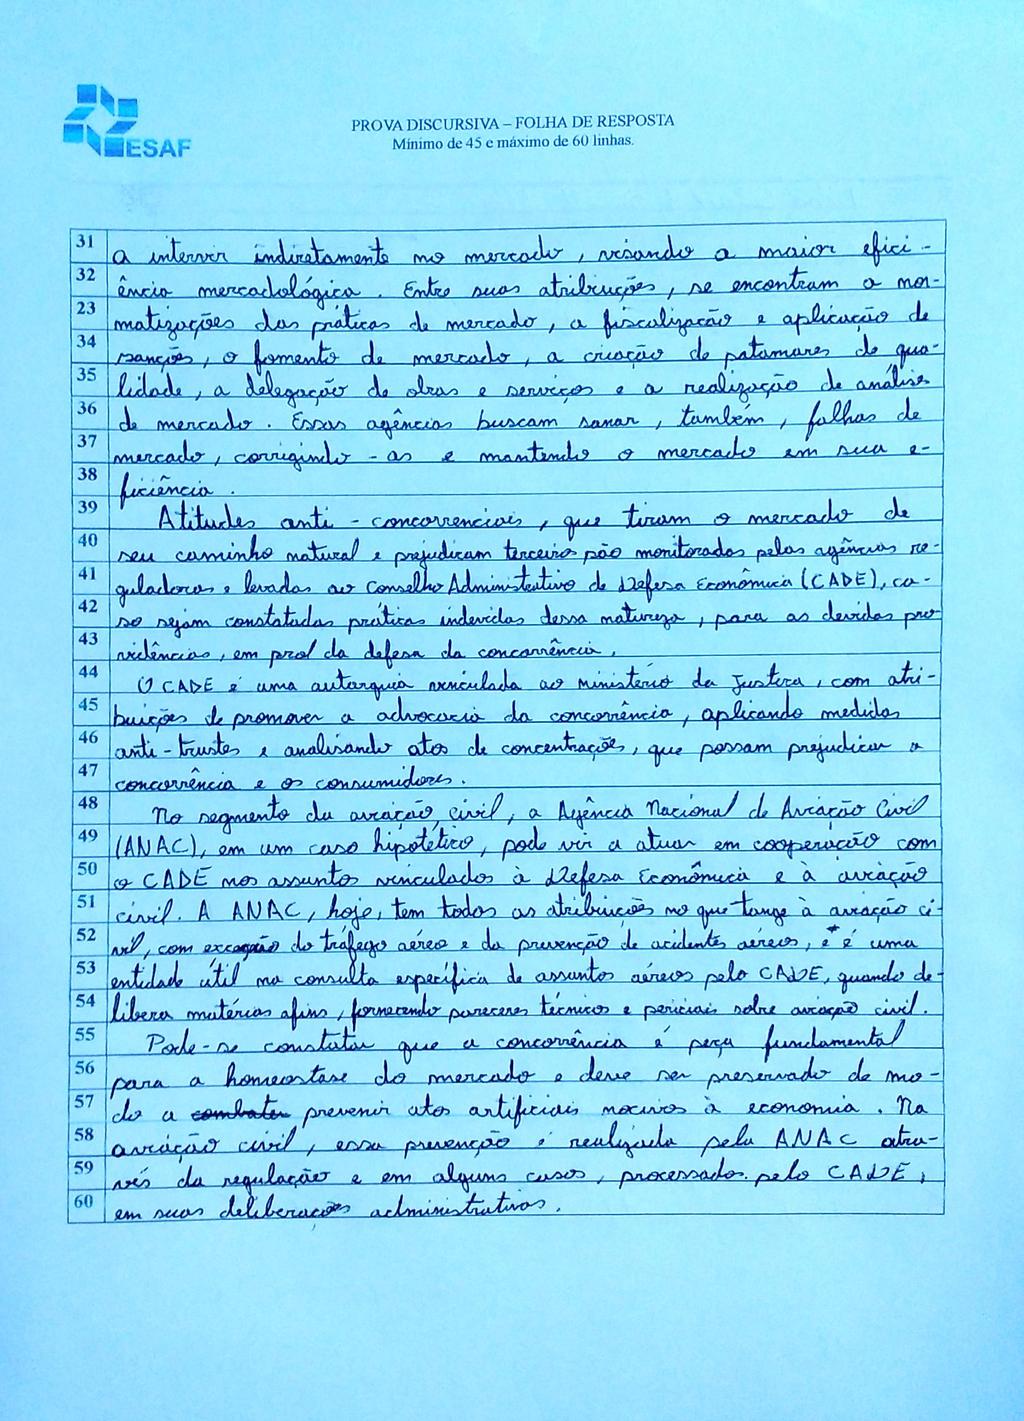 ESAF
PROVA DISCURSIVA – FOLHA DE RESPOSTA
Mínimo de 45 e máximo de 60 linhas.
31 a intervir indiretamente no mercado, visando a maior efici-
32 ência mercadológica. Entre suas atribuições, se encontram a nor-
23 matizações das práticas de mercado, a fiscalização e aplicação de
34 sanções, o fomento de mercado, a criação de patamares de qua-
35 lidade, a delegação de obras e serviços e a realização de análises
36 de mercado. Essas agências buscam sanar, também, falhas de
37 mercado, corrigindo-as e mantendo o mercado em sua e-
38 ficiência.
39 Atitudes anti-concorrenciais, que tiram o mercado de
40 seu caminho natural e prejudicam terceiros são monitoradas pelas agências re-
41 guladoras e levadas ao Conselho Administrativo de Defesa Econômica (CADE), ca-
42 so sejam constatadas práticas indevidas dessa natureza, para as devidas pro-
43 vidências, em prol da defesa da concorrência.
44 O CADE é uma autarquia vinculada ao ministério da Justiça, com atri-
45 buições de promover a advocacia da concorrência, aplicando medidas
46 anti-trustes e analisando atos de concentrações, que possam prejudicar a
47 concorrência e os consumidores.
48 No segmento da aviação civil, a Agência Nacional de Aviação Civil
49 (ANAC), em um caso hipotético, pode vir a atuar em cooperação com
50 o CADE nos assuntos vinculados à Defesa Econômica e à aviação
51 civil. A ANAC, hoje, tem todos as atribuições no que tange à aviação ci-
52 vil, com exceção do tráfego aéreo e da prevenção de acidentes aéreos, e é uma
53 entidade útil na consulta específica de assuntos aéreos pelo CADE, quando de-
54 libera matérias afins, fornecendo pareceres técnicos e periciais sobre aviação civil.
55 Pode-se constatar que a concorrência é peça fundamental
56 para a homeostase do mercado e deve ser preservado de mo-
57 do a combater prevenir atos artificiais nocivos à economia. Na
58 aviação civil, essa prevenção é realizada pela ANAC atra-
59 vés da regulação e em alguns casos, processados pelo CADE,
60 em suas deliberações administrativas.